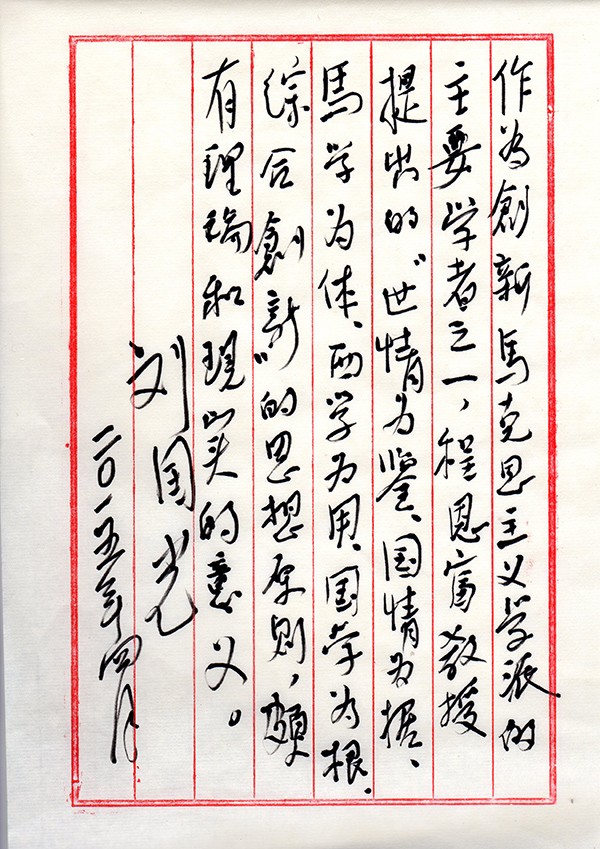 作为創新馬克思主义学派的
主要学者之一，程恩富教授
提出的“世情为鉴、国情为据、
馬学为体、西学为用、国学为根、
综合創新”的思想原则，颇
有理論和现实的意义。
刘国光
二〇一五年四月